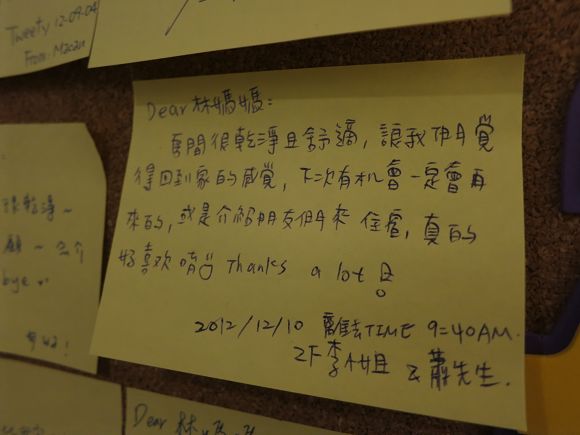 Tweety 12-09-04
From: Macau
Dear 林媽媽:
房間很乾淨且舒適, 讓我们覺
得回到家的感覺, 下次有机會一定會再
來的, 或是介紹朋友們來住宿, 真的
好喜欢唷 Thanks a lot
2012/12/10 離去TIME 9:40AM.
2F李小姐 & 蕭先生.
乾淨~
願~
bye
Dear 林媽媽